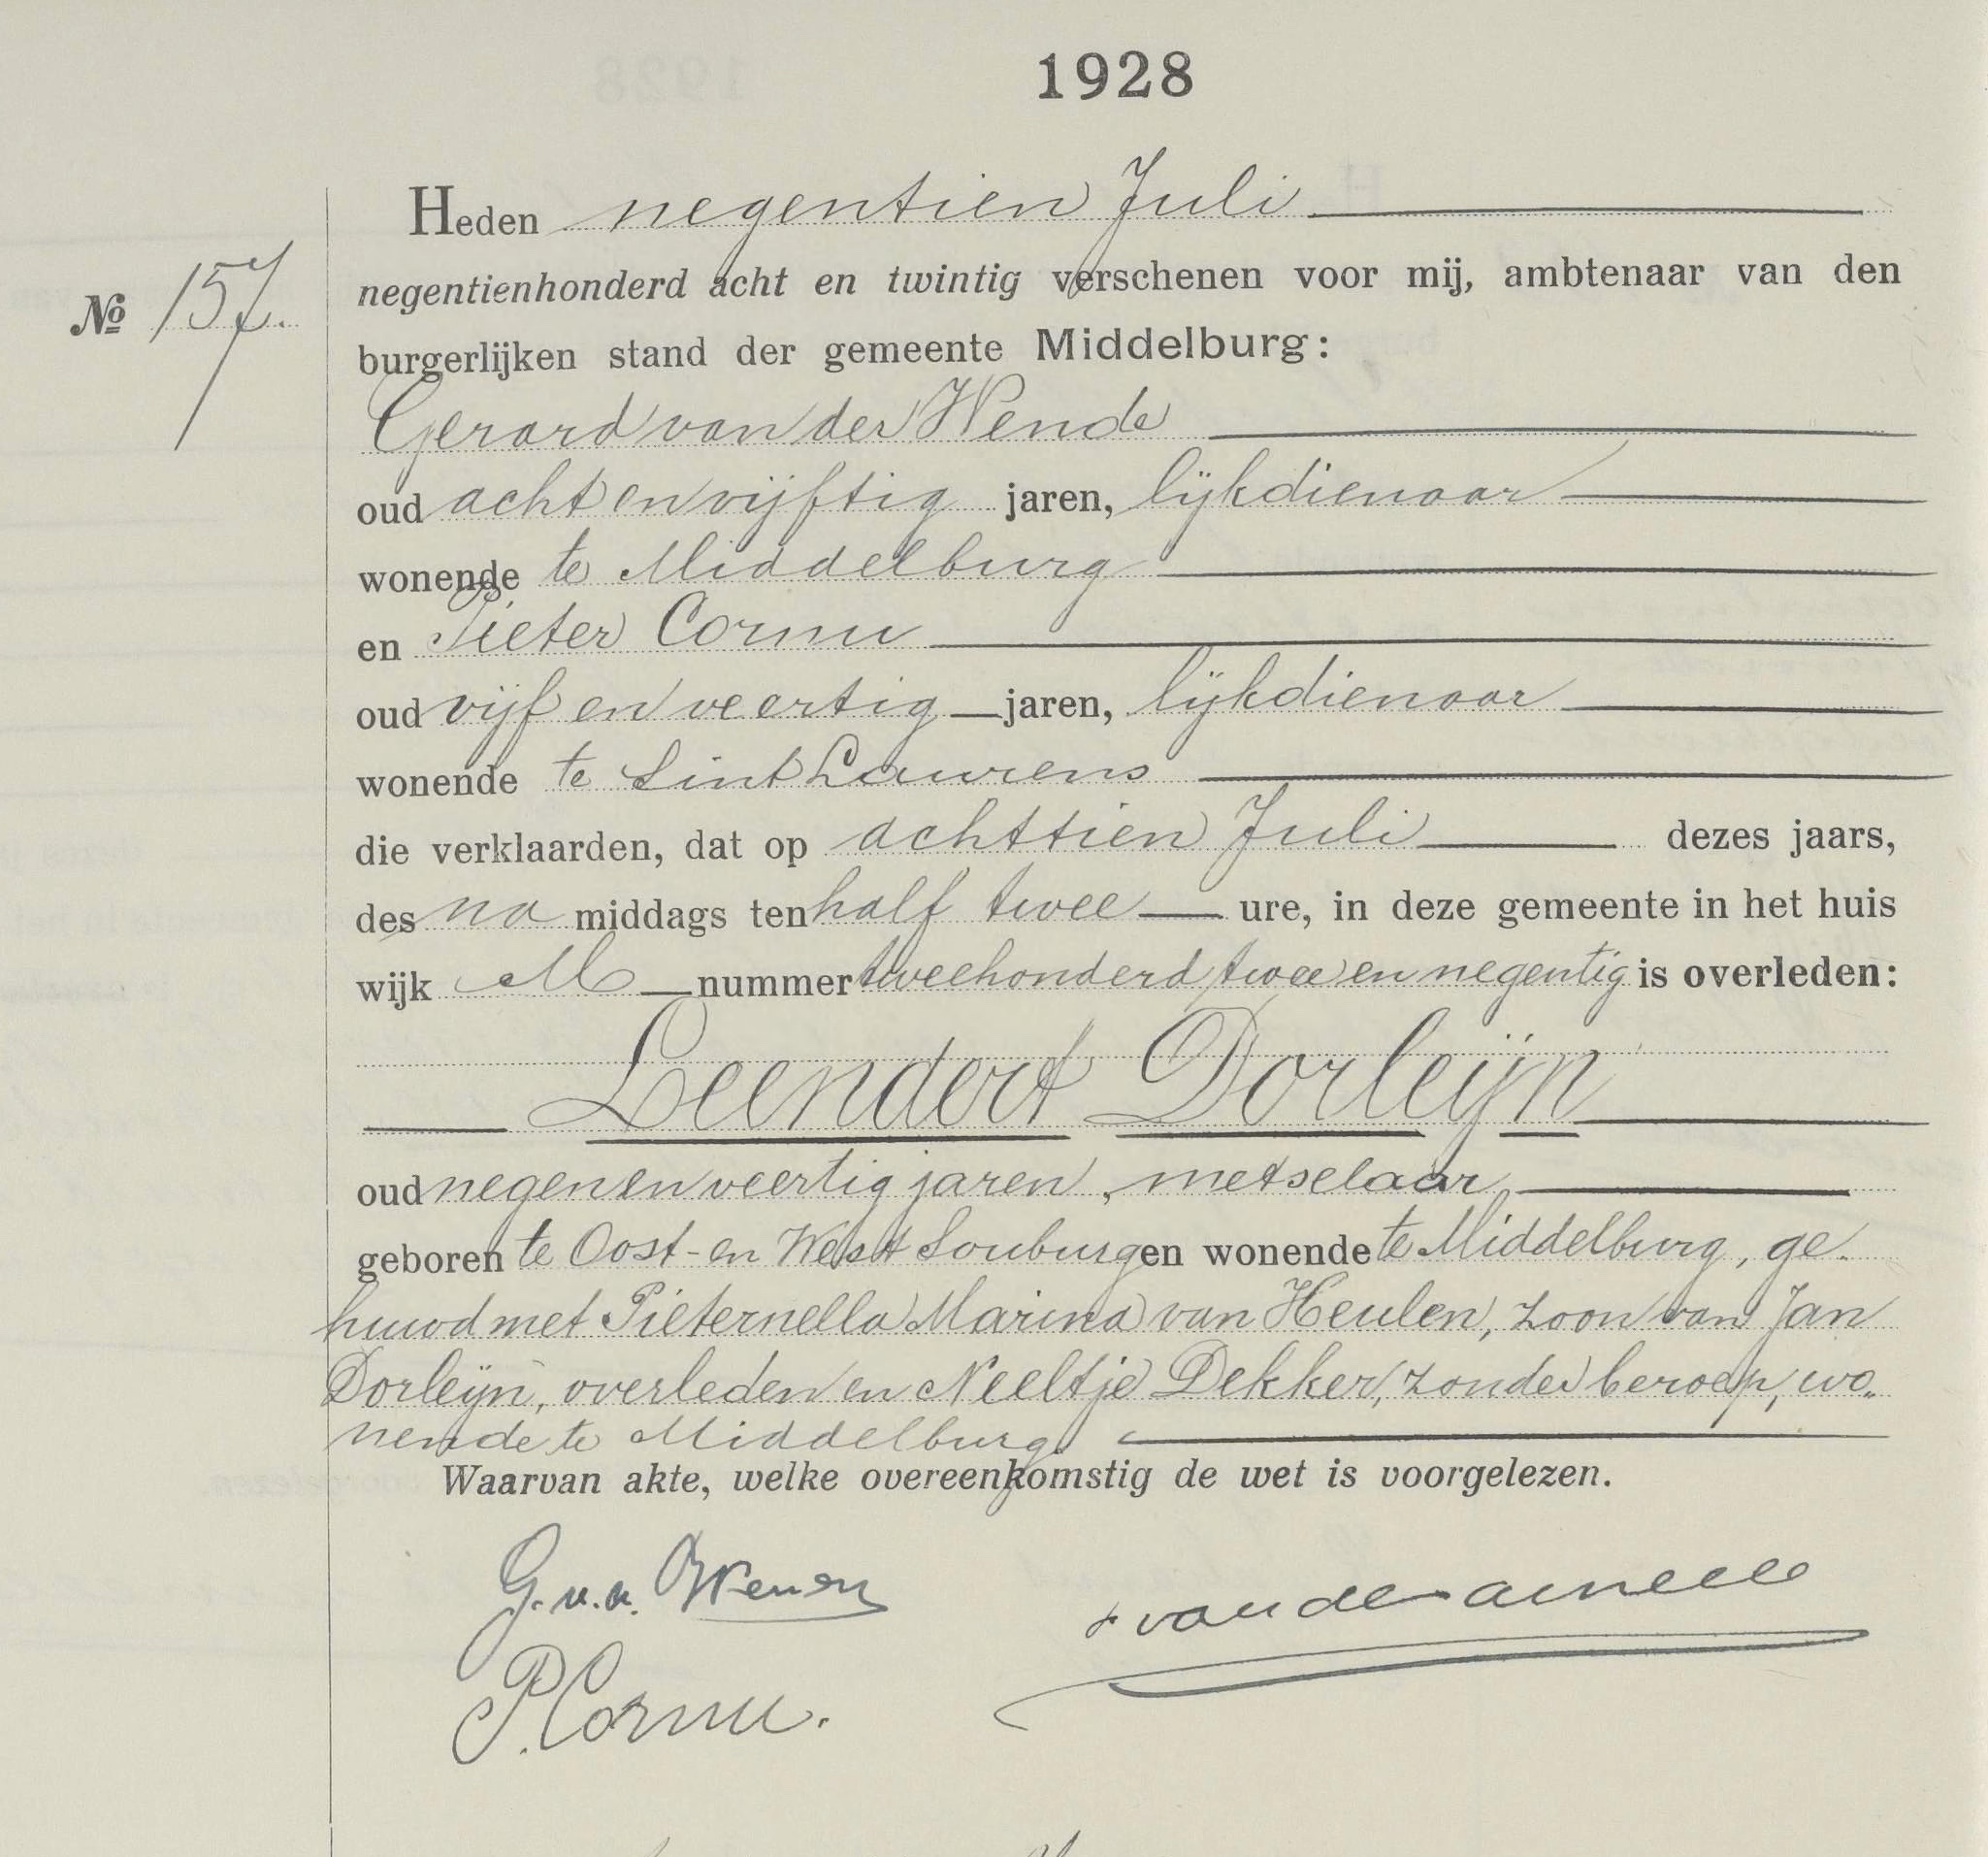 1928
Heden negentien Juli
negentienhonderd acht en twintig verschenen voor mij, ambtenaar van den
No 157.
burgerlijken stand der gemeente Middelburg:
Gerard van der Wende
oud acht en vijftig jaren, lijkdienaar
wonende te Middelburg
en Pieter Cornu
oud vijf en veertig jaren, lijkdienaar
wonende te Sint Laurens
die verklaarden, dat op achttien Juli dezes jaars,
des na middags ten half twee ure, in deze gemeente in het huis
wijk M nummer tweehonderd twee en negentig is overleden:
Leendert Dorleijn
oud negen en veertig jaren, metselaar,
geboren te Oost- en West Souburg en wonende te Middelburg, ge-
huwd met Pieternella Marina van Heulen, zoon van Jan
Dorleijn, overleden en Neeltje Dekker, zonder beroep, wo„
nende te Middelburg.
Waarvan akte, welke overeenkomstig de wet is voorgelezen.
G. v. d. Wende
P. Cornu.